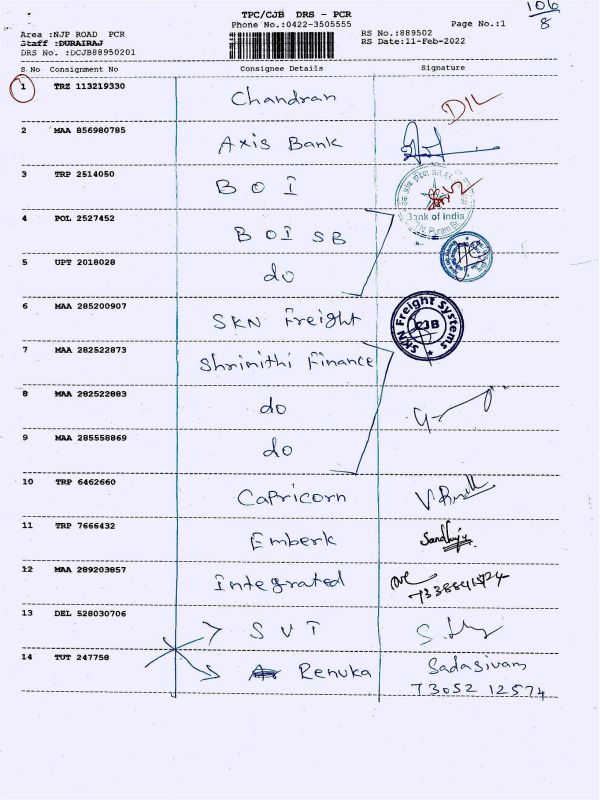 106
8
TPC/CJB DRS - PCR
Phone No.:0422-3505555
Page No.:1
Area :NJP ROAD PCR
Staff :DURAIRAJ
DRS No. :DCJB88950201
RS No.:889502
RS Date:11-Feb-2022
S No Consignment No Consignee Details Signature
1 TRZ 113219330 Chandran DIL
2 MAA 856980785 Axis Bank
3 TRP 2514050 BOI
Bank of India
4 POL 2527452 BOI SB
5 UPT 2018028 do
6 MAA 285200907 SKN Freight
SKN Freight Systems
CJB
7 MAA 282522873 Shrinithi Finance
8 MAA 282522883 do
9 MAA 285558869 do
10 TRP 6462660 Capricorn
11 TRP 7666432 Emberk
12 MAA 289203857 Integrated
13 DEL 528030706 SVT
14 TUT 247758 Renuka Sadasivam
73052 12574